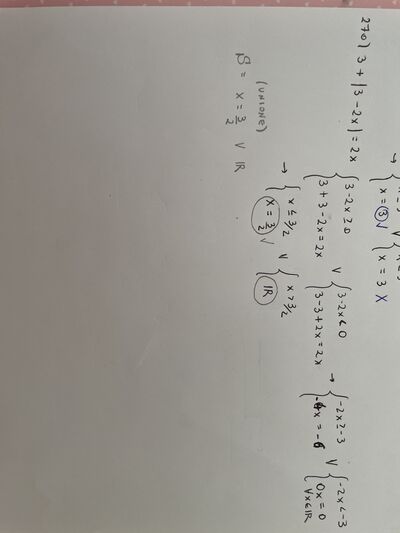 x = 3 V { x = 3 X
270) 3 + |3 - 2x| = 2x
{ 3 - 2x ≥ 0 V { 3 - 2x < 0 → { -2x ≥ -3 V { -2x < -3
{ 3 + 3 - 2x = 2x { 3 - 3 + 2x = 2x { -4x = -6 { 0x = 0
∀x∈IR
→ { x ≤ 3/2 V { x > 3/2
{ x = 3/2 V { IR
(UNIONE)
S = x = 3/2 V IR